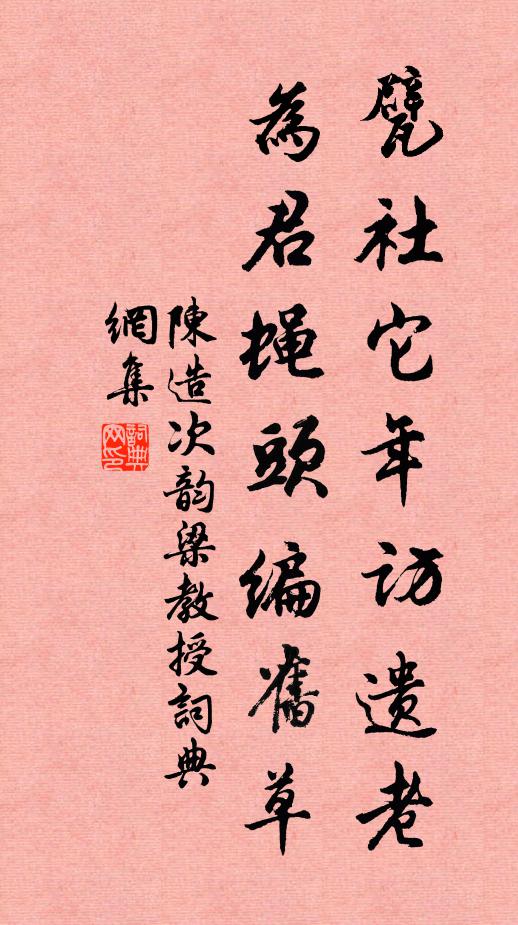 甓社它年訪遺老
為君蝇頭編舊草
陳造次韵梁教授詞典
網集
詞典
网印